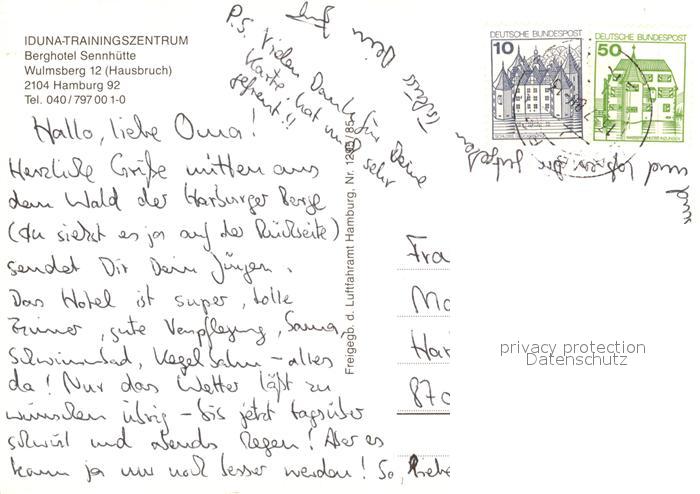 IDUNA-TRAININGSZENTRUM
Berghotel Sennhütte
Wulmsberg 12 (Hausbruch)
2104 Hamburg 92
Tel. 040/797 00 1-0
P.S. Vielen Dank für Deine
Karte, hat mich sehr
gefreut!!
DEUTSCHE BUNDESPOST
10
DEUTSCHE BUNDESPOST
50
Hallo, liebe Oma!
Herzliche Grüße mitten aus
dem Wald der Harburger Berge
(du siehst es ja auf der Rückseite)
sendet Dir Dein Jürgen.
Das Hotel ist super, tolle
Zimmer, gute Verpflegung, Sauna,
Schwimmbad, Kegelbahn – alles
da! Nur das Wetter läßt zu
wünschen übrig – bis jetzt tagsüber
schwül und abends Regen! Aber es
kann ja nur noch besser werden! So, liebe
und
Dein
Freigegb. d. Luftfahramt Hamburg, Nr.
Fra
Mo
Har
870
privacy protection
Datenschutz